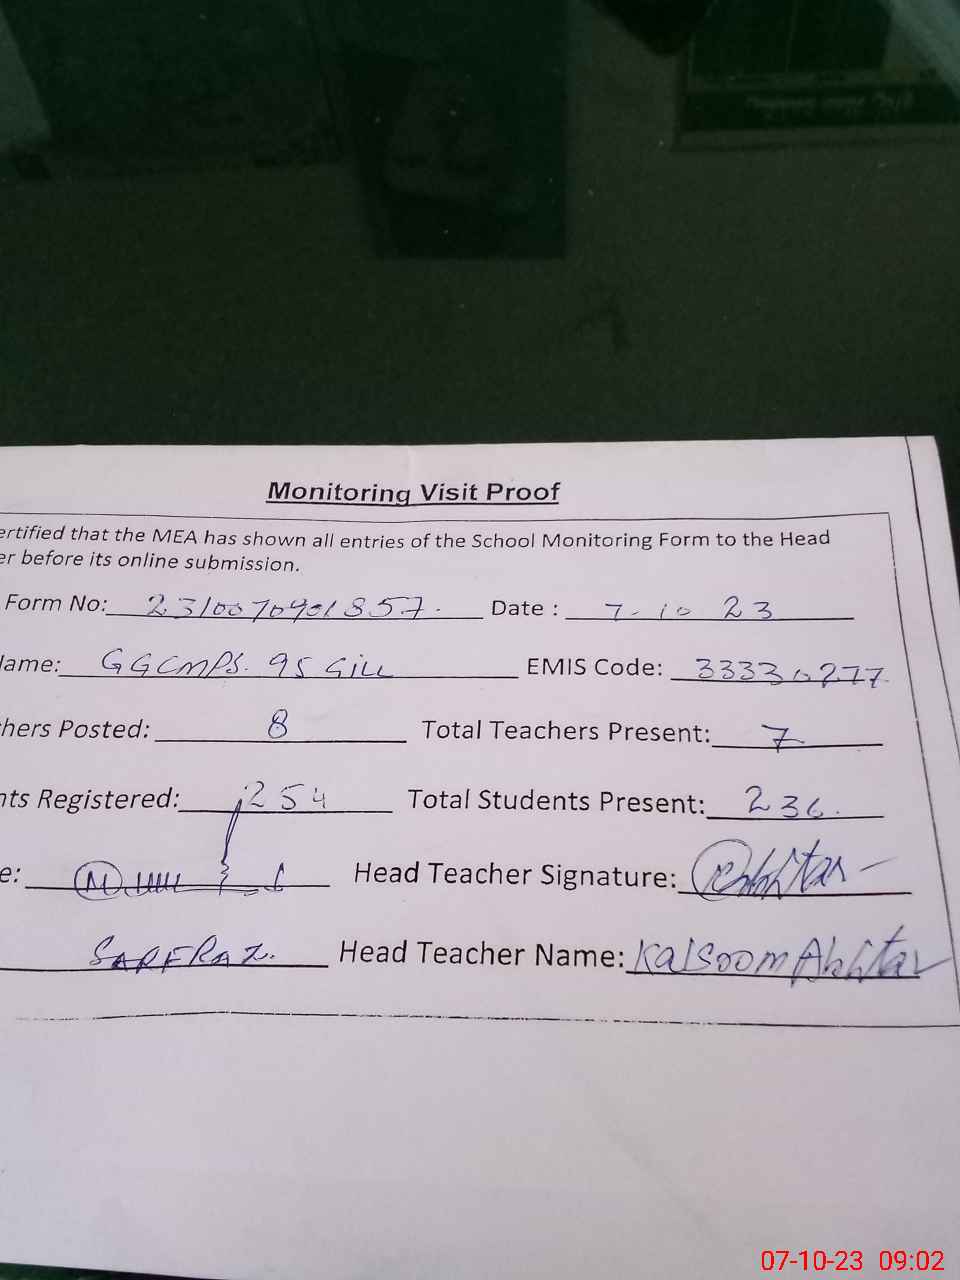 Monitoring Visit Proof
ertified that the MEA has shown all entries of the School Monitoring Form to the Head
er before its online submission.
Form No: 2310070901857. Date : 7-10 23
lame: GGCMPS. 95 GILL EMIS Code: 33330277
hers Posted: 8 Total Teachers Present: 7
nts Registered: 254 Total Students Present: 236.
e: Head Teacher Signature: Akhtar
SARFRAZ. Head Teacher Name: Kalsoom Akhtar
07-10-23 09:02